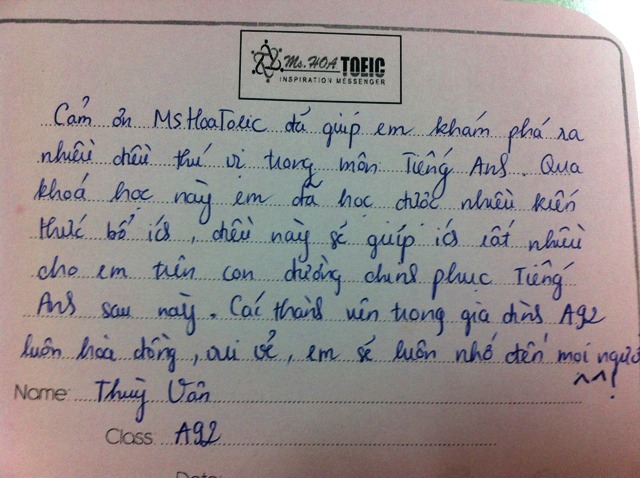 Ms. HOA TOEIC
INSPIRATION MESSENGER
Cảm ơn MsHoaToeic đã giúp em khám phá ra
nhiều điều thú vị trong môn Tiếng Anh. Qua
khoá học này em đã học được nhiều kiến
thức bổ ích, điều này sẽ giúp ích rất nhiều
cho em trên con đường chinh phục Tiếng
Anh sau này. Các thành viên trong gia đình A92
luôn hoà đồng, vui vẻ, em sẽ luôn nhớ đến mọi người
^^!
Name: Thuỳ Vân
Class: A92
Date: